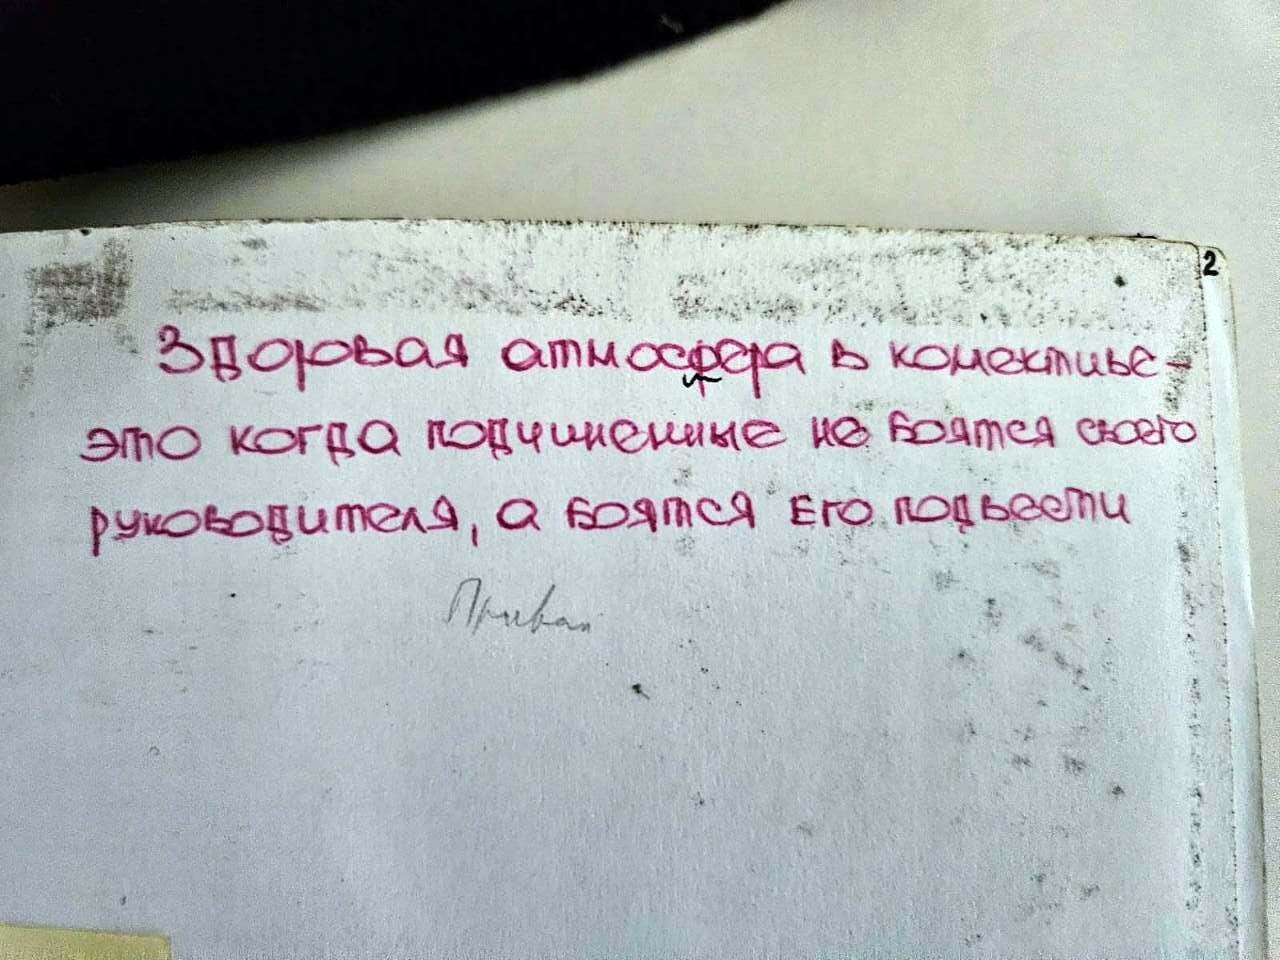 2
Здоровая атмосфера в колективе-
это когда подчиненные не боятся своего
руководителя, а боятся Его подвести